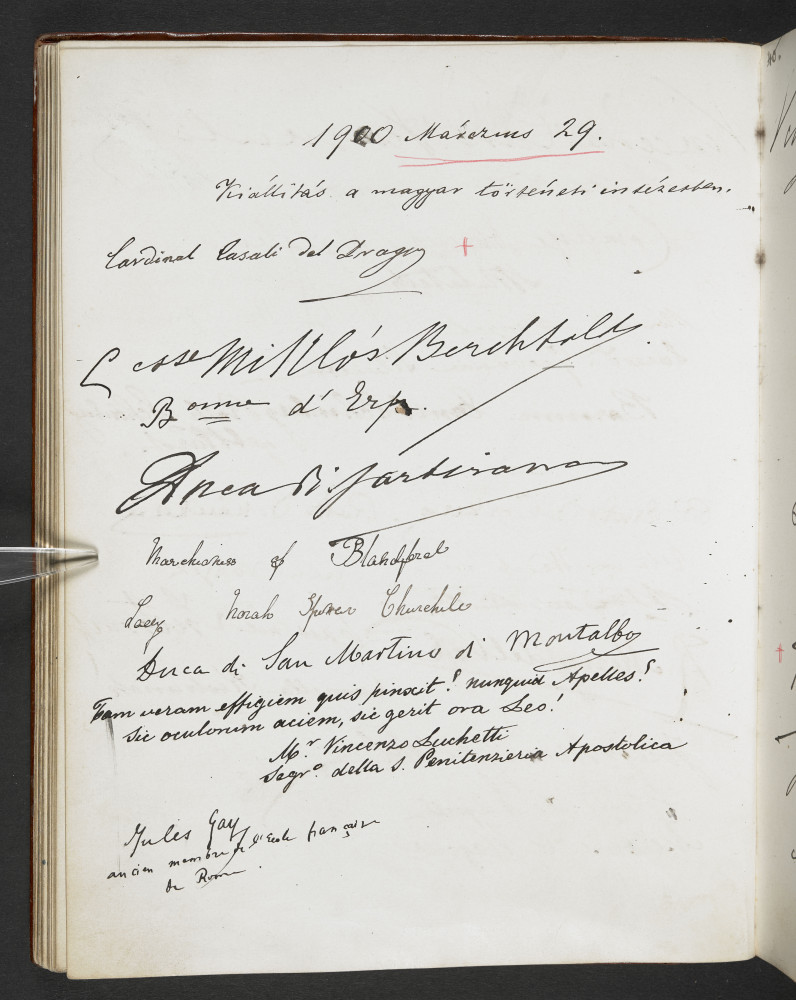 1900 Márczius 29.
Kiállitás a magyar történeti intézetben.
Cardinal Casali del Drago
Ctesse Miklós Berchtold.
Bonne d'Erp.
Duca di Sartirana
Marchioness of Blandford
Lady Norah Spencer Churchill
Duca di San Martino di Montalbo
Tam veram effigiem quis pinxit? nunquid Apelles?
Sic oculorum aciem, sic gerit ora Leo!
Mr Vincenzo Luchetti
Segro. della S. Penitenzieria Apostolica
Jules Gay
ancien membre de l'Ecole française
de Rome.